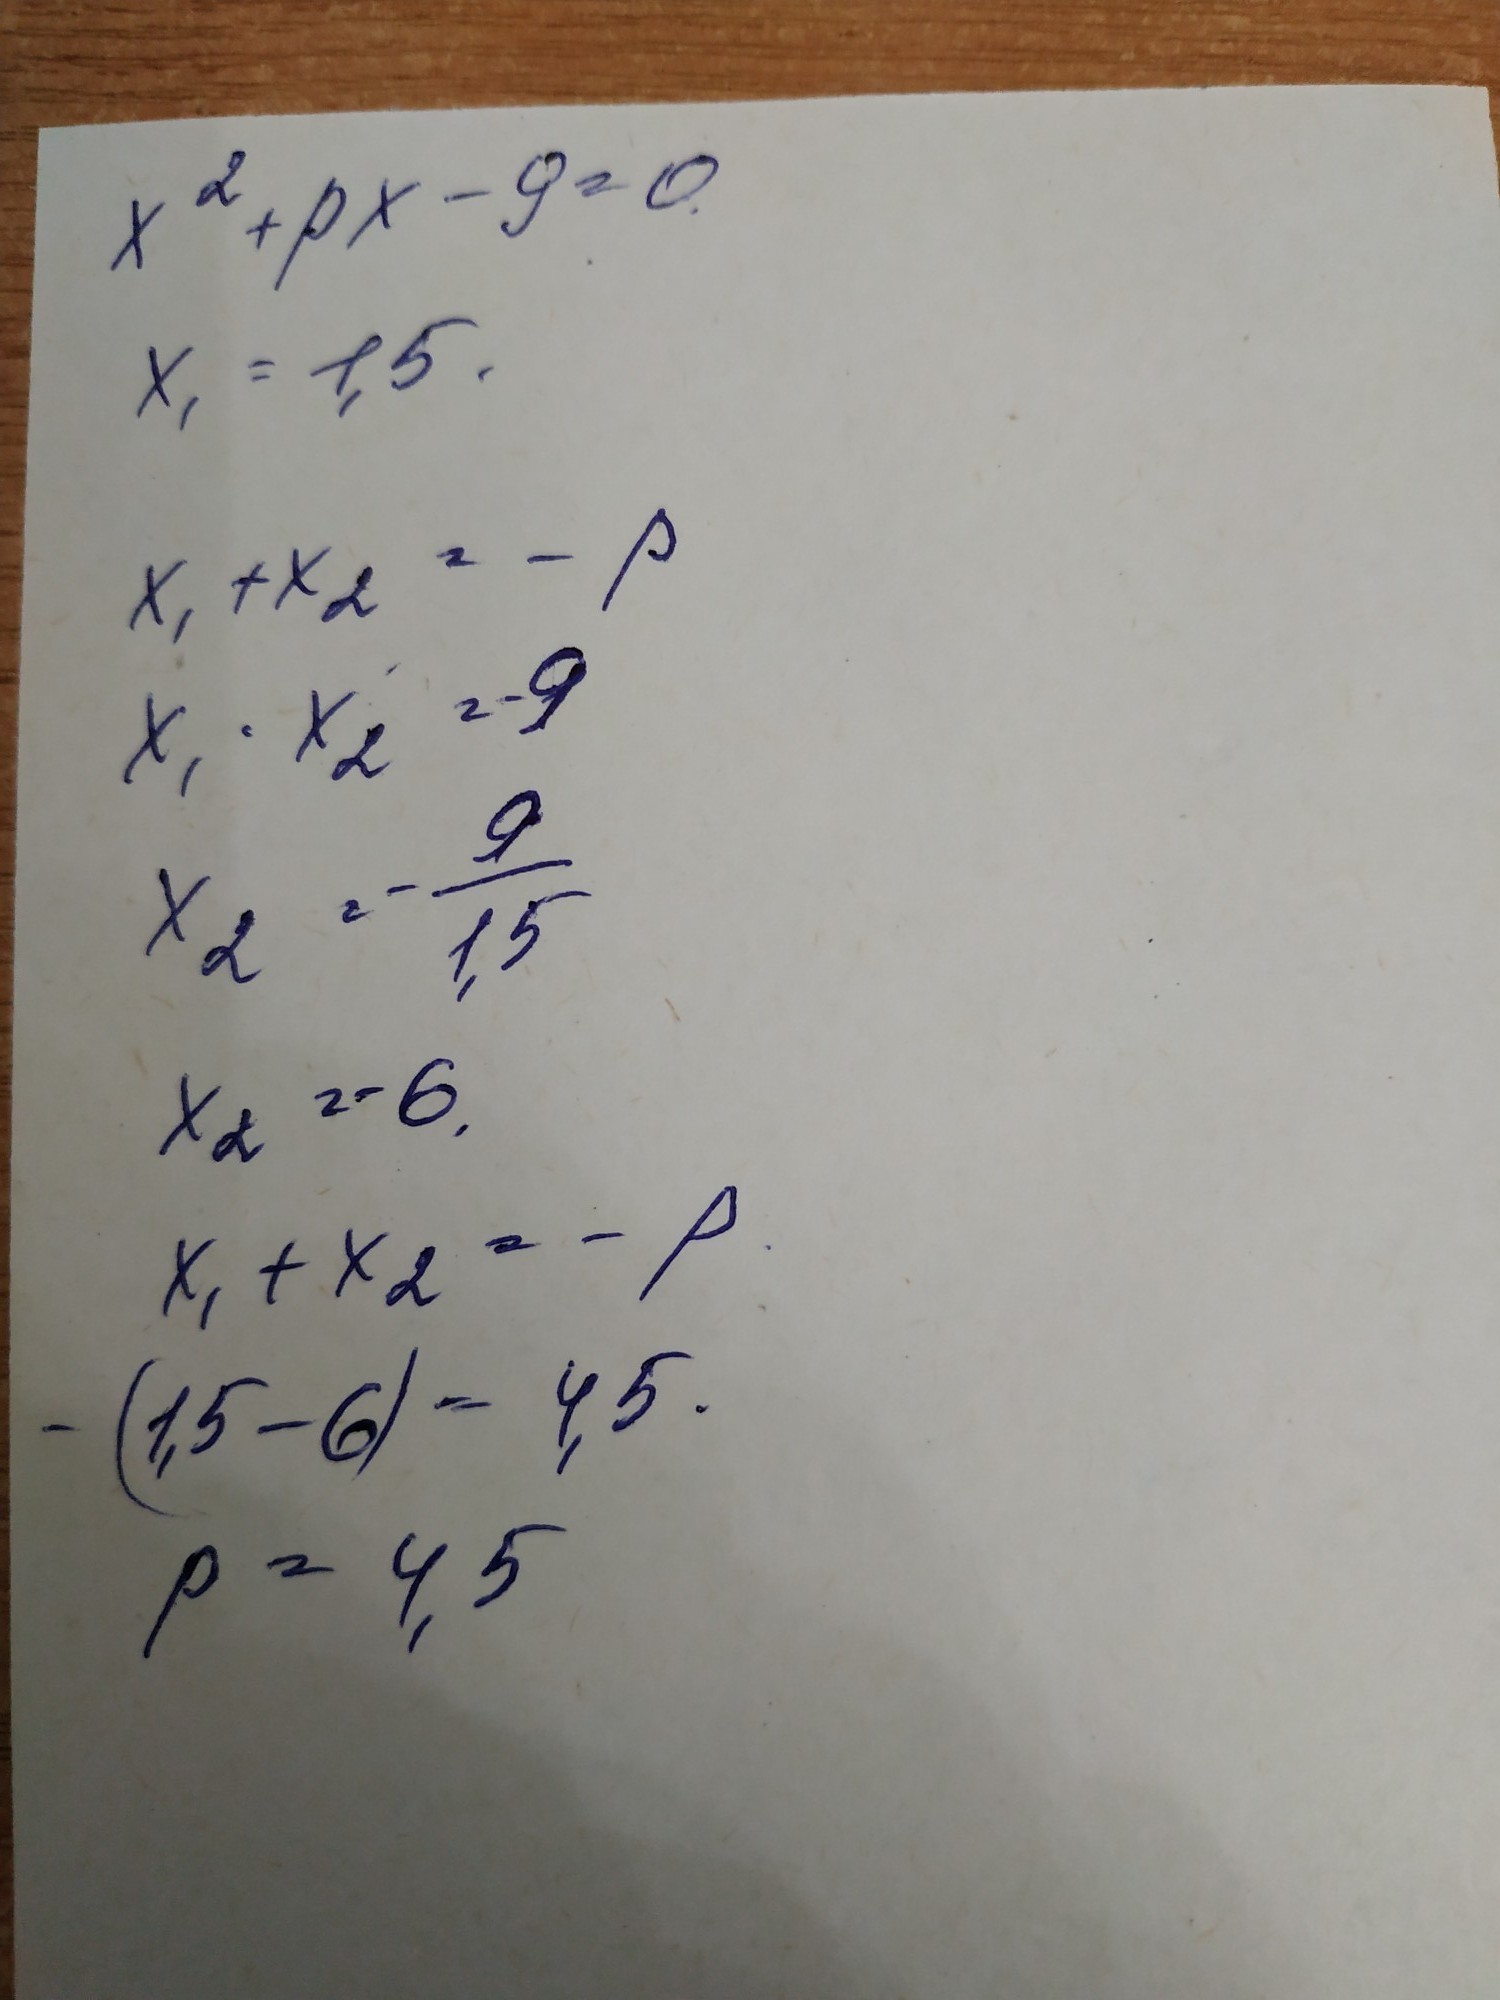 x² + px - 9 = 0.
x₁ = 1,5.
x₁ + x₂ = - p
x₁ · x₂ = -9
x₂ = - 9/1,5
x₂ = -6.
x₁ + x₂ = - p.
- (1,5 - 6) = 4,5.
p = 4,5